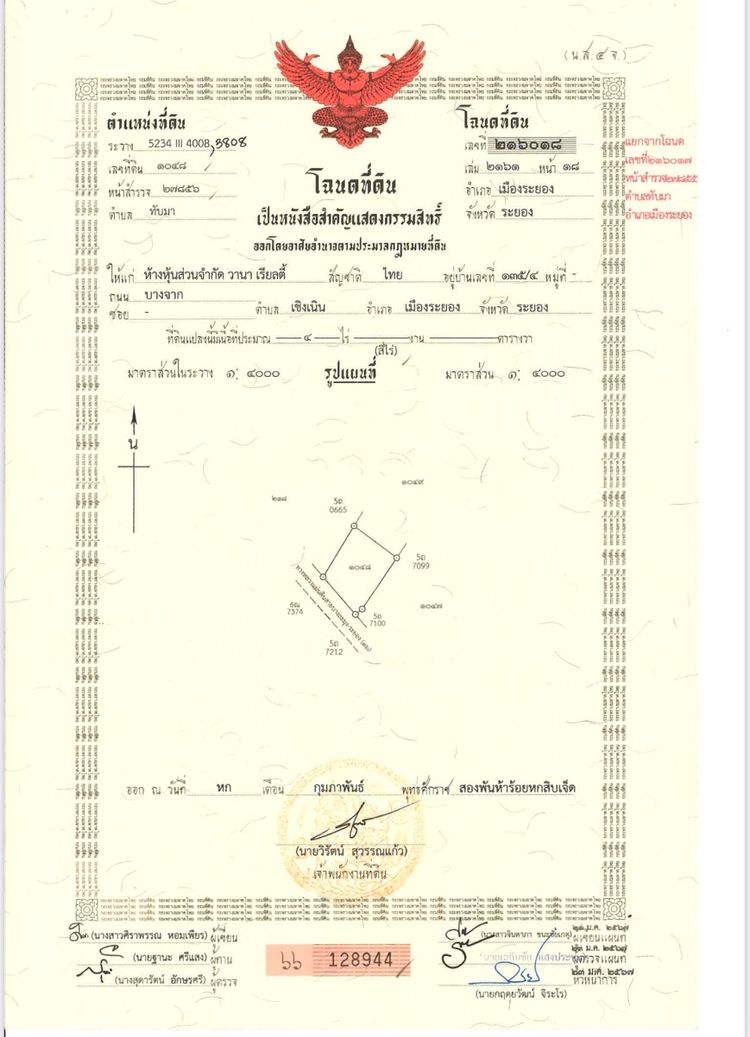 (น.ส.๔ จ.)
ตำแหน่งที่ดิน
ระวาง 5234 III 4008, 3808
เลขที่ดิน ๑๐๔๘
หน้าสำรวจ ๒๗๘๕๖
ตำบล ทับมา
โฉนดที่ดิน
เลขที่ ๒๑๖๐๑๘
เล่ม ๒๑๖๑ หน้า ๑๘
อำเภอ เมืองระยอง
จังหวัด ระยอง
แยกจากโฉนด
เลขที่๒๑๖๐๑๗
หน้าสำรวจ๒๗๘๕๕
ตำบลทับมา
อำเภอเมืองระยอง
โฉนดที่ดิน
เป็นหนังสือสำคัญแสดงกรรมสิทธิ์
ออกโดยอาศัยอำนาจตามประมวลกฎหมายที่ดิน
ให้แก่ ห้างหุ้นส่วนจำกัด วานา เรียลตี้ สัญชาติ ไทย อยู่บ้านเลขที่ ๑๓๕/๔ หมู่ที่ -
ถนน บางจาก
ซอย - ตำบล เชิงเนิน อำเภอ เมืองระยอง จังหวัด ระยอง
ที่ดินแปลงนี้มีเนื้อที่ประมาณ ๔ ไร่ งาน ตารางวา
(สี่ไร่)
มาตราส่วนในระวาง ๑: ๔๐๐๐ รูปแผนที่ มาตราส่วน ๑: ๔๐๐๐
น
๑๐๔๙
๒๑๘
5ถ
0665
5ถ
7099
๑๐๔๘
๑๐๔๗
6ฌ
7374
5ถ
7100
5ถ
7212
ออก ณ วันที่ หก เดือน กุมภาพันธ์ พุทธศักราช สองพันห้าร้อยหกสิบเจ็ด
(นายวิรัตน์ สุวรรณแก้ว)
เจ้าพนักงานที่ดิน
(นางสาวศิราพรรณ หอมเพียร) ผู้เขียน
(นายฐานะ ศรีแสง) ผู้ทาน
(นางสุดารัตน์ อักษรศรี) ผู้ตรวจ
๖๖ 128944
ผู้เขียนแผนที่
ผู้ตรวจแผนที่
๒๓ ม.ค. ๒๕๖๗
หัวหน้าการ
(นายกฤตยวัฒน์ จิระโร)